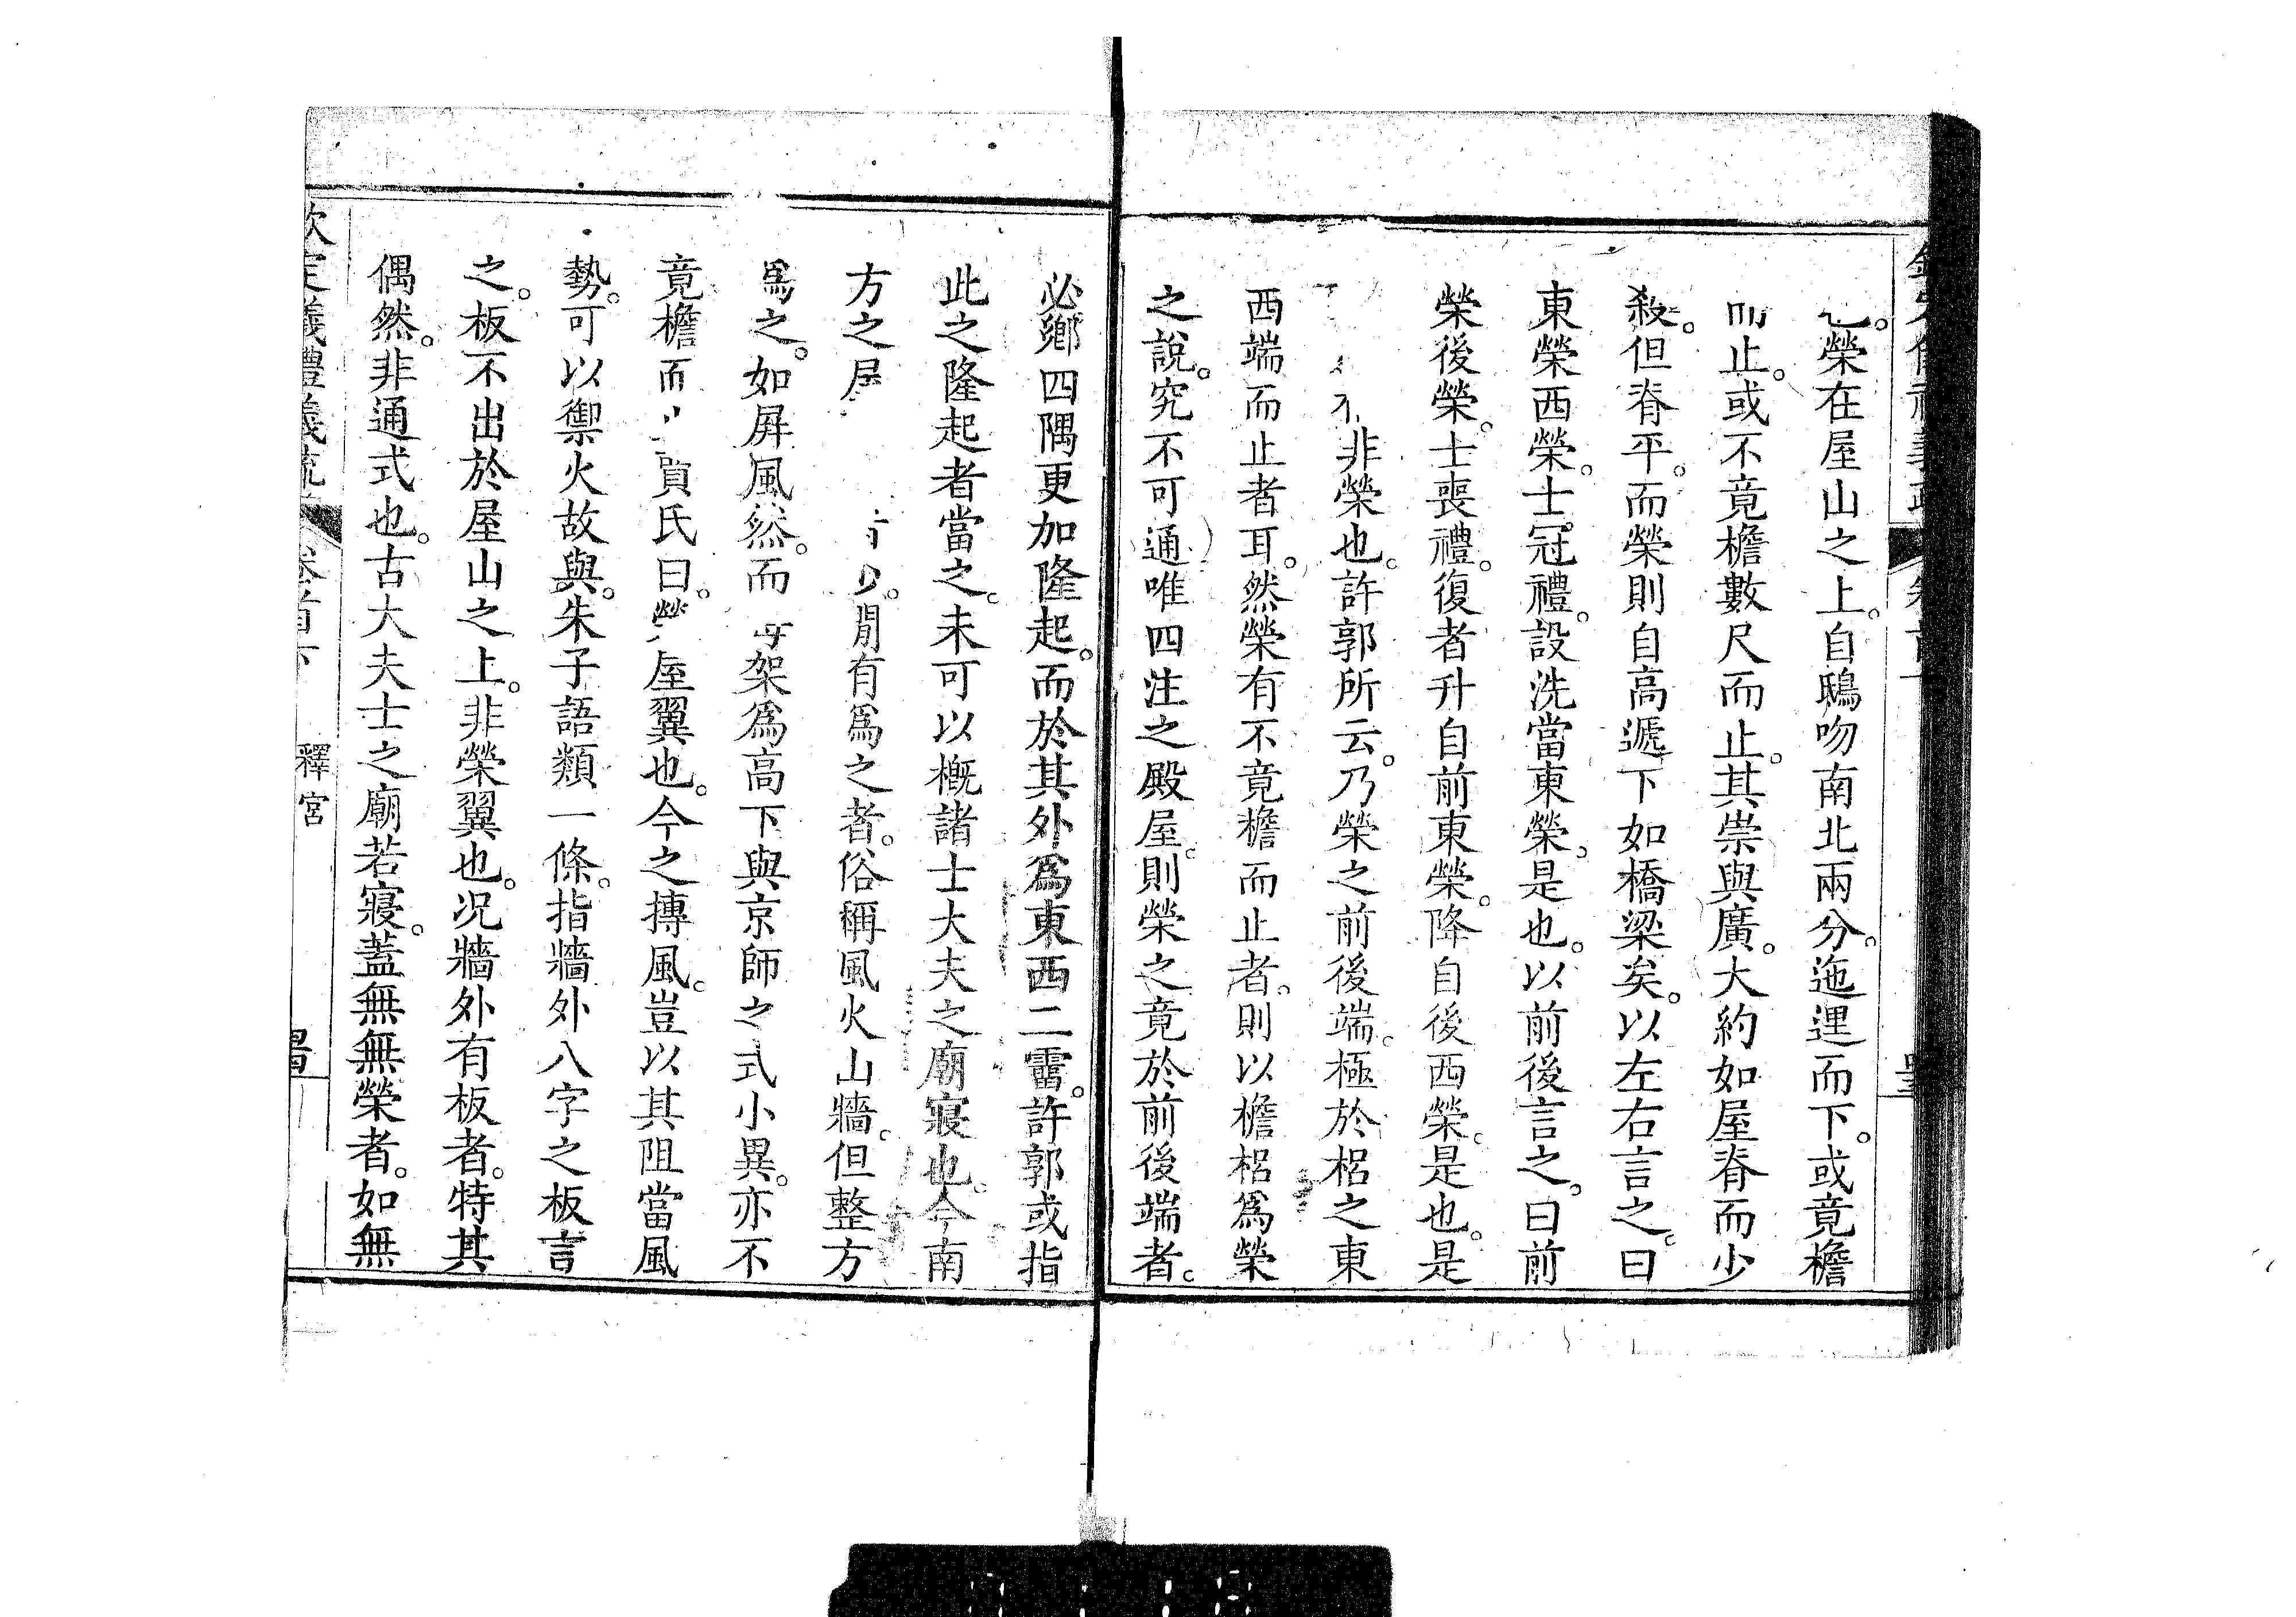 也。榮在屋山之上。自鴟吻南北兩分。迤逦而下。或竟檐
而止。或不竟檐數尺而止。其崇與廣。大約如屋脊而少
殺。但脊平。而榮則自高遞下如橋梁矣。以左右言之。曰
東榮西榮。士冠禮。設洗當東榮。是也。以前後言之。曰前
榮後榮。士喪禮。復者升自前東榮。降自後西榮。是也。是
非榮也。許郭所云。乃榮之前後端。極於梠之東
西端而止者耳。然榮有不竟檐而止者。則以檐梠爲榮
之說。究不可通唯四注之殿屋。則榮之竟於前後端者。
必鄉四隅更加隆起。而於其外爲東西二霤。許郭或指
此之隆起者當之。未可以概諸士大夫之廟寢也。今南
方之屋 閒有爲之者。俗稱風火山牆。但整方
爲之。如屏風然。而 架爲高下與京師之式小異。亦不
竟檐而 賈氏曰。榮屋翼也。今之摶風。豈以其阻當風
勢。可以禦火故與。朱子語類一條。指牆外八字之板言
之。板不出於屋山之上。非榮翼也。况牆外有板者。特其
偶然。非通式也。古大夫士之廟若寢。蓋無無榮者。如無
欽定儀禮義疏 卷首下 釋宮